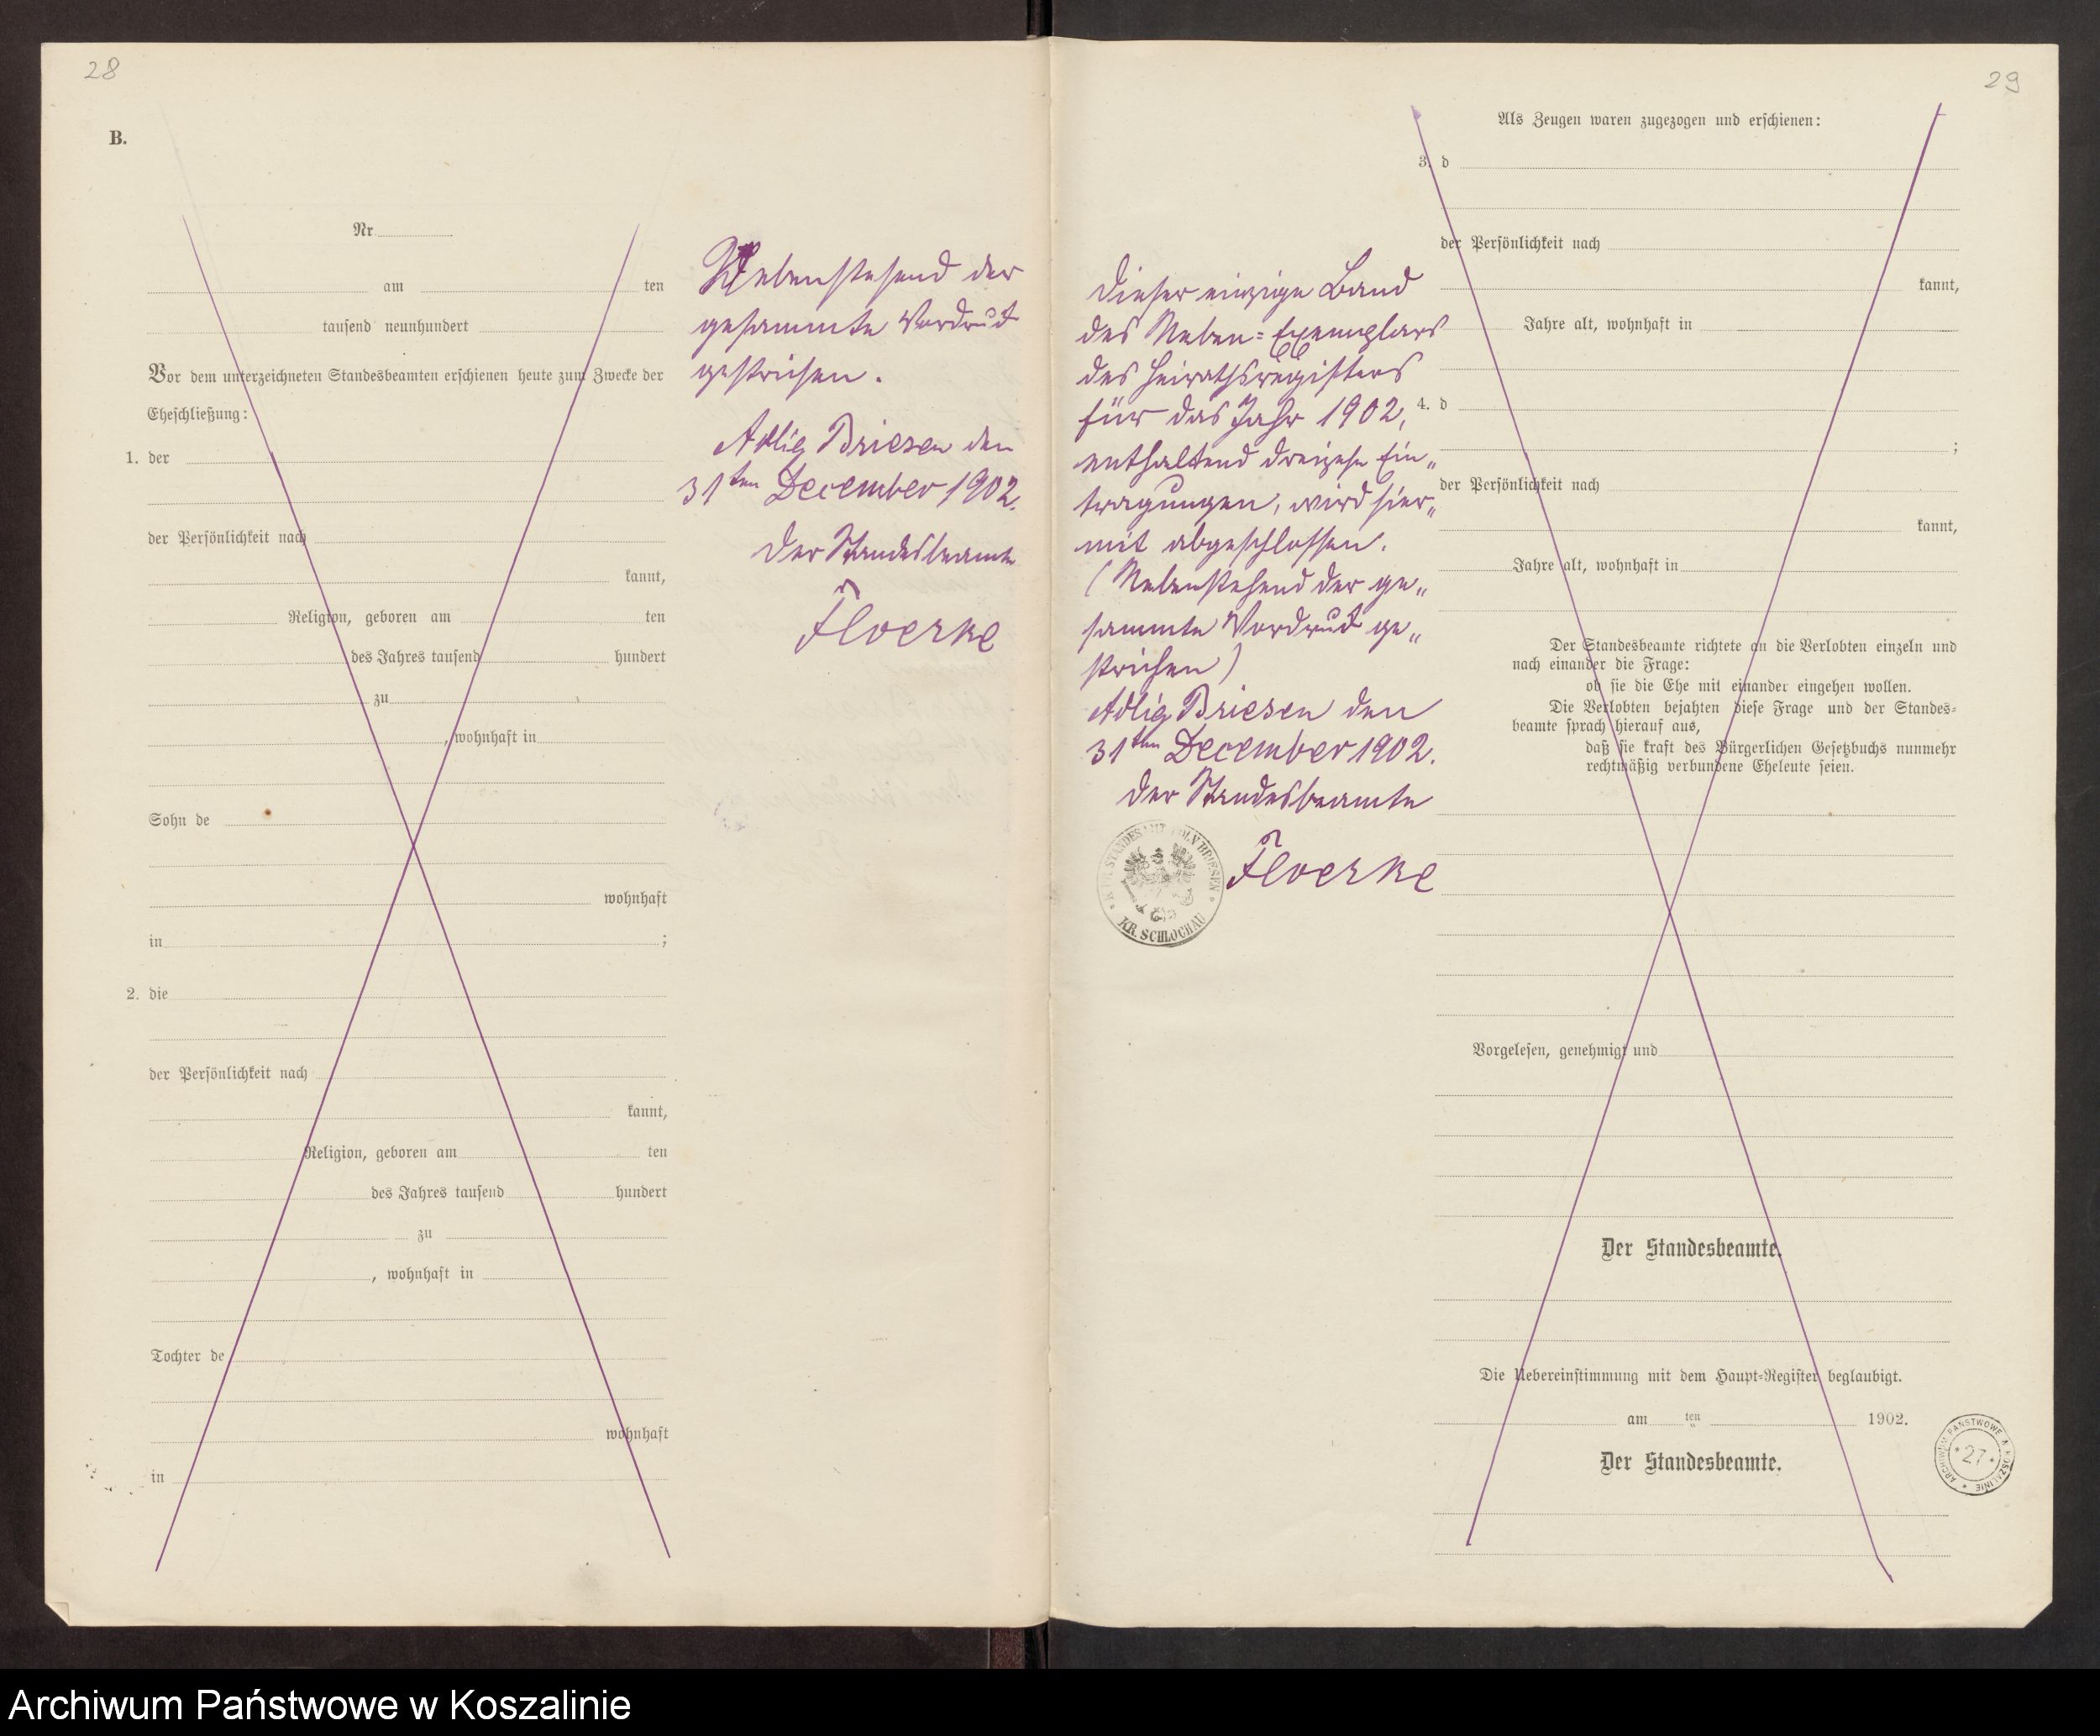 28
B.
Nr
am ten
tausend neunhundert
Vor dem unterzeichneten Standesbeamten erschienen heute zum Zwecke der
Eheschließung:
1. der
der Persönlichkeit nach
kannt,
Religion, geboren am ten
des Jahres tausend hundert
zu
, wohnhaft in
Sohn de
wohnhaft
in ;
2. die
der Persönlichkeit nach
kannt,
Religion, geboren am ten
des Jahres tausend hundert
zu
, wohnhaft in
Tochter de
wohnhaft
in
Nebenstehend der
gesammte Vordruck
gestrichen.
Adlig Briesen den
31ten December 1902.
Der Standesbeamte
Floerke
Dieser einzige Band
des Neben=Exemplars
des Heirathsregisters
für das Jahr 1902,
enthaltend dreizehn Ein„
tragungen, wird hier„
mit abgeschlossen.
(Nebenstehend der ge„
sammte Vordruck ge„
strichen)
Adlig Briesen den
31ten December 1902.
Der Standesbeamte
Floerke
STANDESAMT BRIESEN
KR. SCHLOCHAU
29
Als Zeugen waren zugezogen und erschienen:
3. d
der Persönlichkeit nach
kannt,
Jahre alt, wohnhaft in
4. d
;
der Persönlichkeit nach
kannt,
Jahre alt, wohnhaft in
Der Standesbeamte richtete an die Verlobten einzeln und
nach einander die Frage:
ob sie die Ehe mit einander eingehen wollen.
Die Verlobten bejahten diese Frage und der Standes=
beamte sprach hierauf aus,
daß sie kraft des Bürgerlichen Gesetzbuchs nunmehr
rechtmäßig verbundene Eheleute seien.
Vorgelesen, genehmigt und
Der Standesbeamte.
Die Uebereinstimmung mit dem Haupt=Register beglaubigt.
am ten 1902.
Der Standesbeamte.
ARCHIWUM PAŃSTWOWE w KOSZALINIE
* 27 *
Archiwum Państwowe w Koszalinie